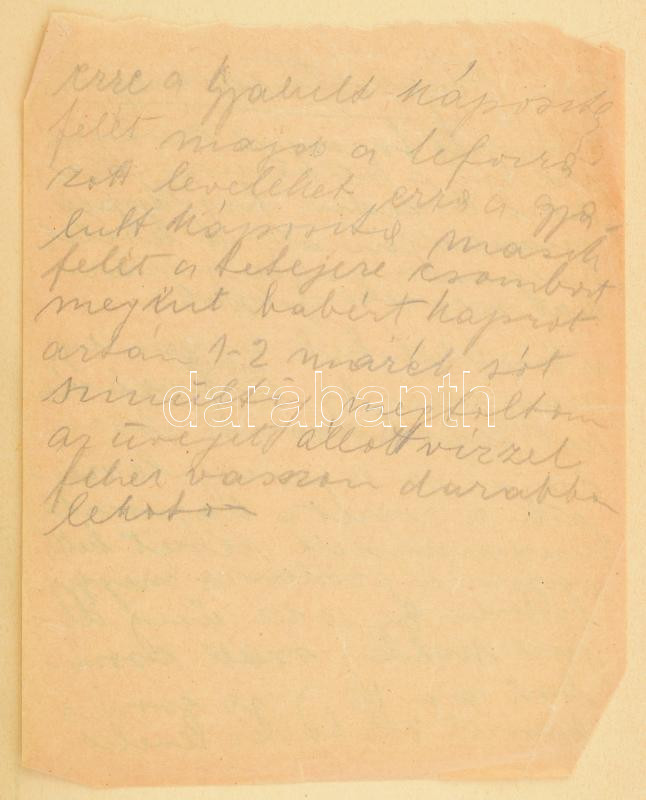 erre a gyalult káposzta
felét majd a leforrá
zott leveleket erre a gya
lult káposzta masik
felét a tetejére csombort
megint babért kaprot
aztán 1-2 marék sót
szinültig megtoltom
az üveget állott vizzel
fehér vaszon darabba
lekotom
darabanth